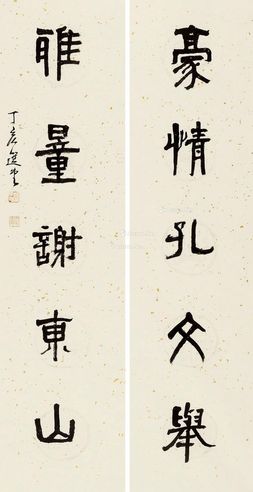 豪情孔文舉
雅量謝東山
丁亥選堂